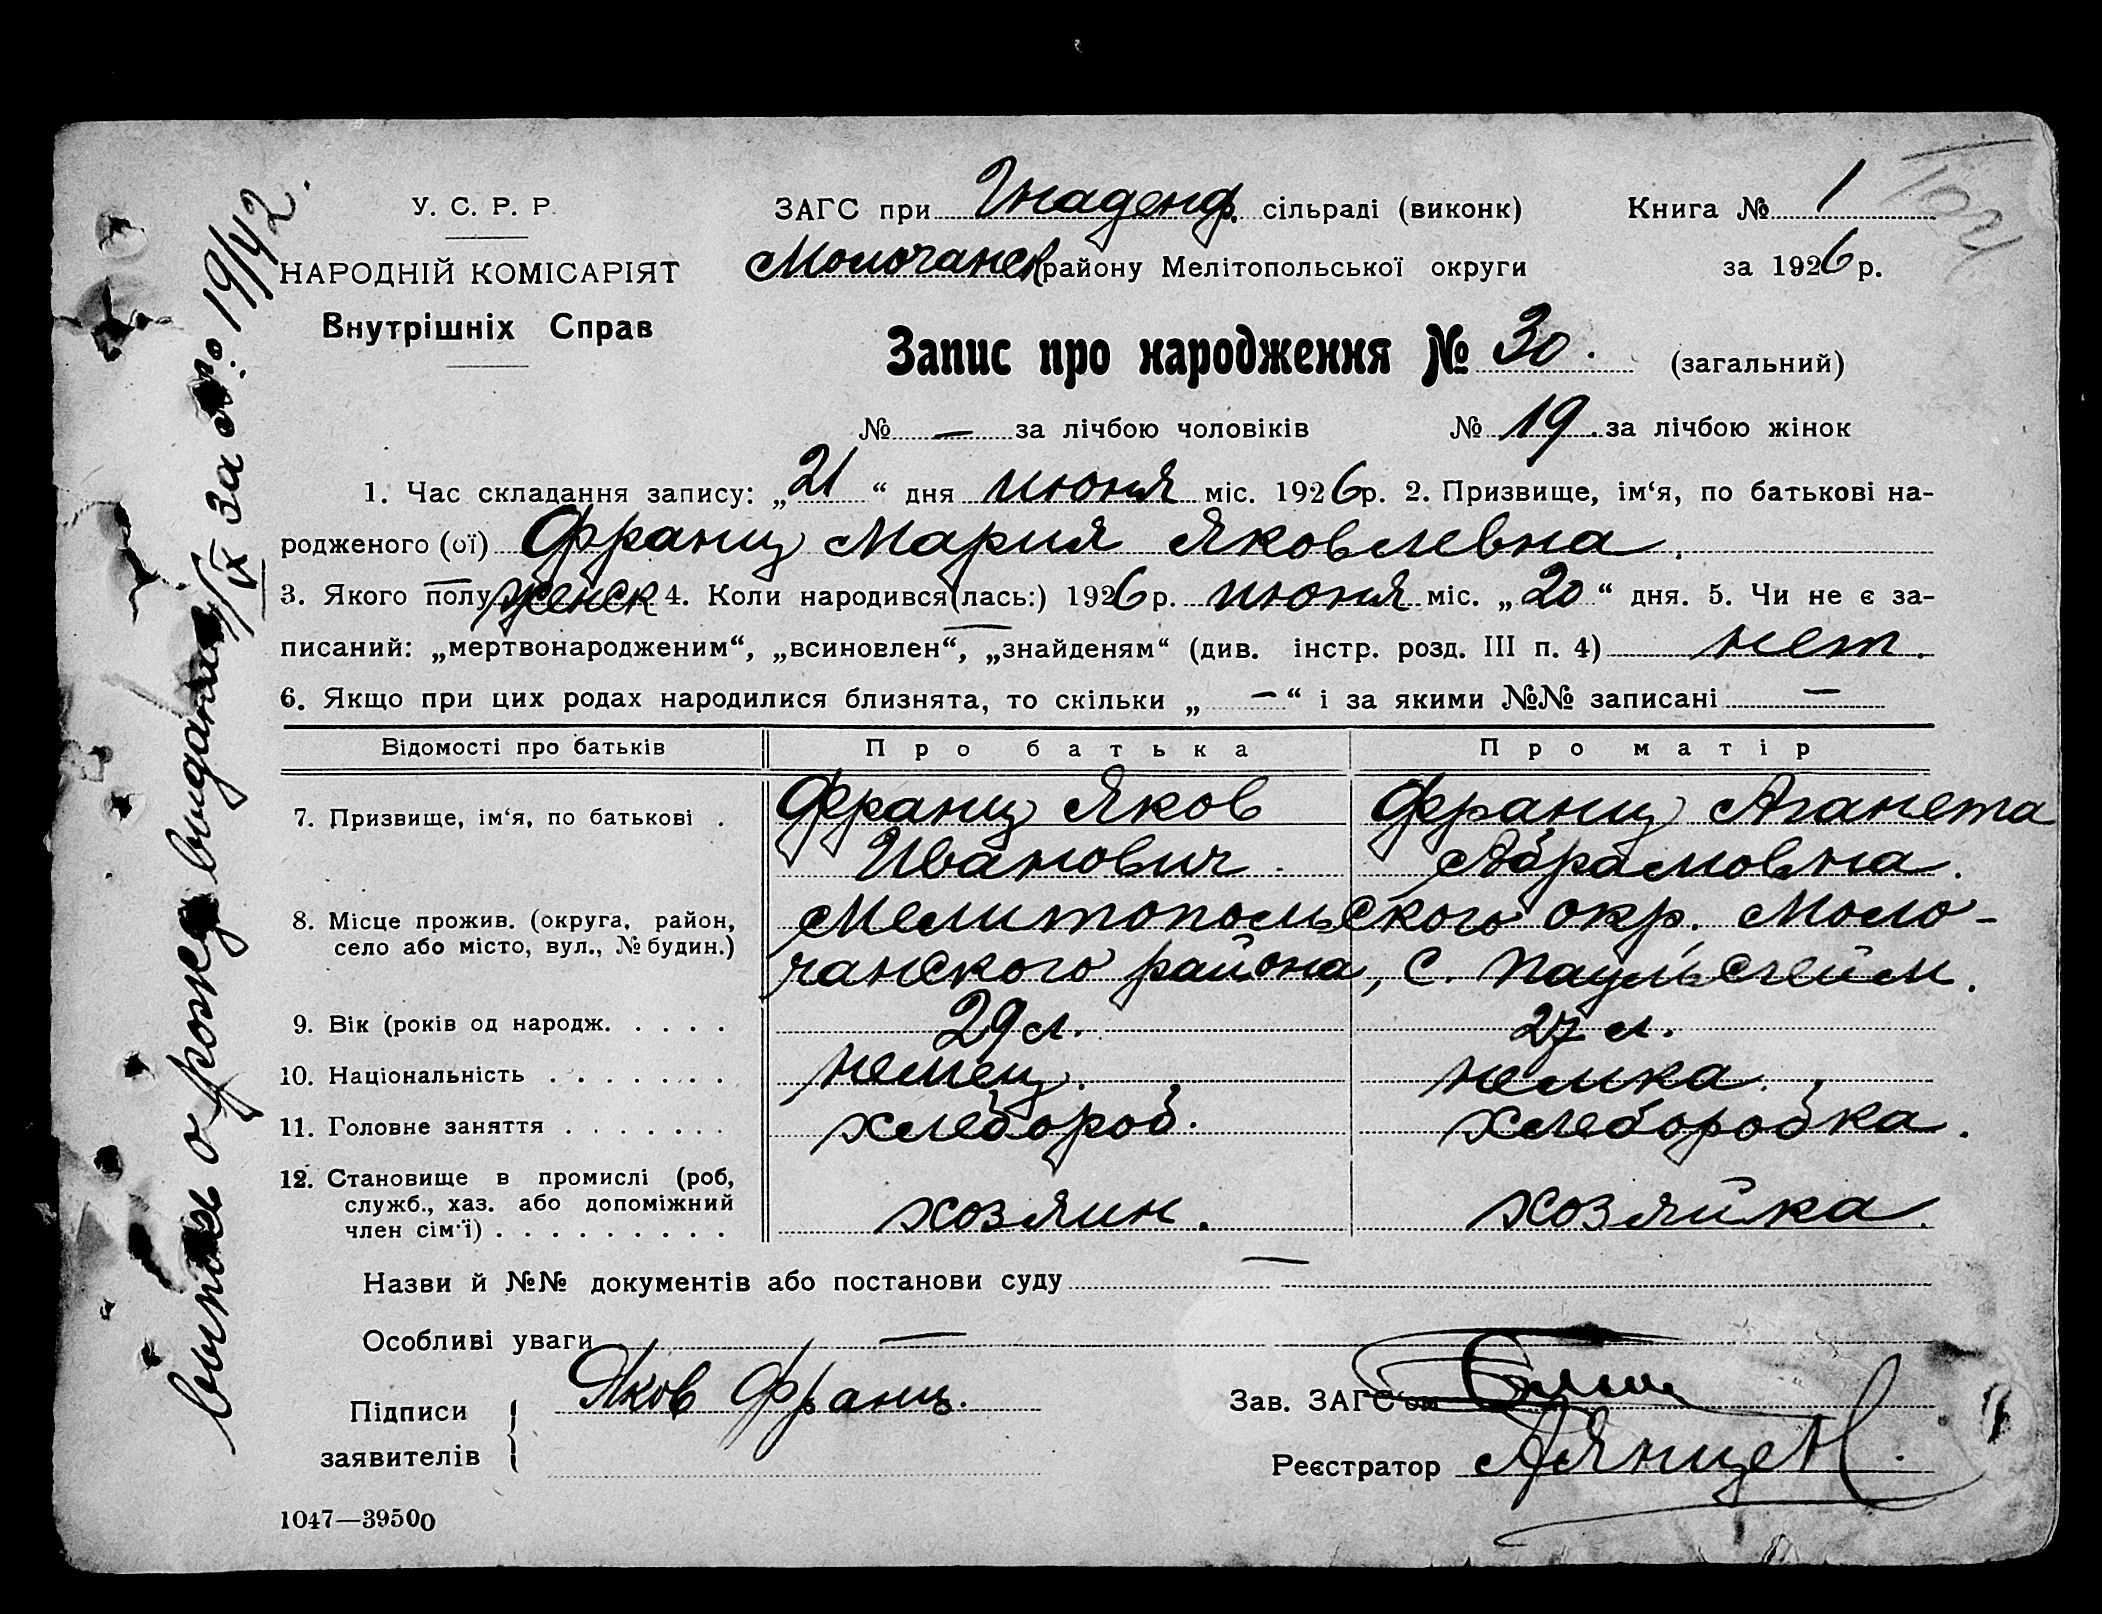 У. С. Р. Р.
НАРОДНІЙ КОМІСАРІЯТ
Внутрішніх Справ
ЗАГС при Гнаденф. сільраді (виконк)
Молочанск району Мелітопольської округи
Книга № 1
за 1926 р.
Запис про народження № 30. (загальний)
№ — за лічбою чоловіків № 19. за лічбою жінок
1. Час складання запису: „21“ дня июня міс. 1926 р. 2. Призвище, ім‘я, по батькові на-
родженого (ої) Франц Мария Яковлевна.
3. Якого полу женск 4. Коли народився(лась:) 1926 р. июня міс. „20“ дня. 5. Чи не є за-
писаний: „мертвонародженим“, „всиновлен“, „знайденям“ (див. інстр. розд. III п. 4) нет.
6. Якщо при цих родах народилися близнята, то скільки „ — “ і за якими №№ записані —
Відомості про батьків Про батька Про матір
7. Призвище, ім‘я, по батькові . Франц Яков Франц Аганета
Иванович. Абрамовна.
8. Місце прожив. (округа, район, Мелитопольского окр. Моло-
село або місто, вул., № будин.) чанского района, с. Паульсгейм.
9. Вік (років од народж. . . . . 29 л. 27 л.
10. Національність . . . . . . . немец. немка.
11. Головне заняття . . . . . . . хлебороб. хлеборобка.
12. Становище в промислі (роб,
служб., хаз. або допоміжний
член сім‘ї) . . . . . . . . . хозяин. хозяйка.
Назви й №№ документів або постанови суду —
Особливі уваги —
Підписи
заявителів
Яков Франц.
Зав. ЗАГС‘ом
Реєстратор
1047—39500
выпись о рожд выдана / IX за № 19/42.